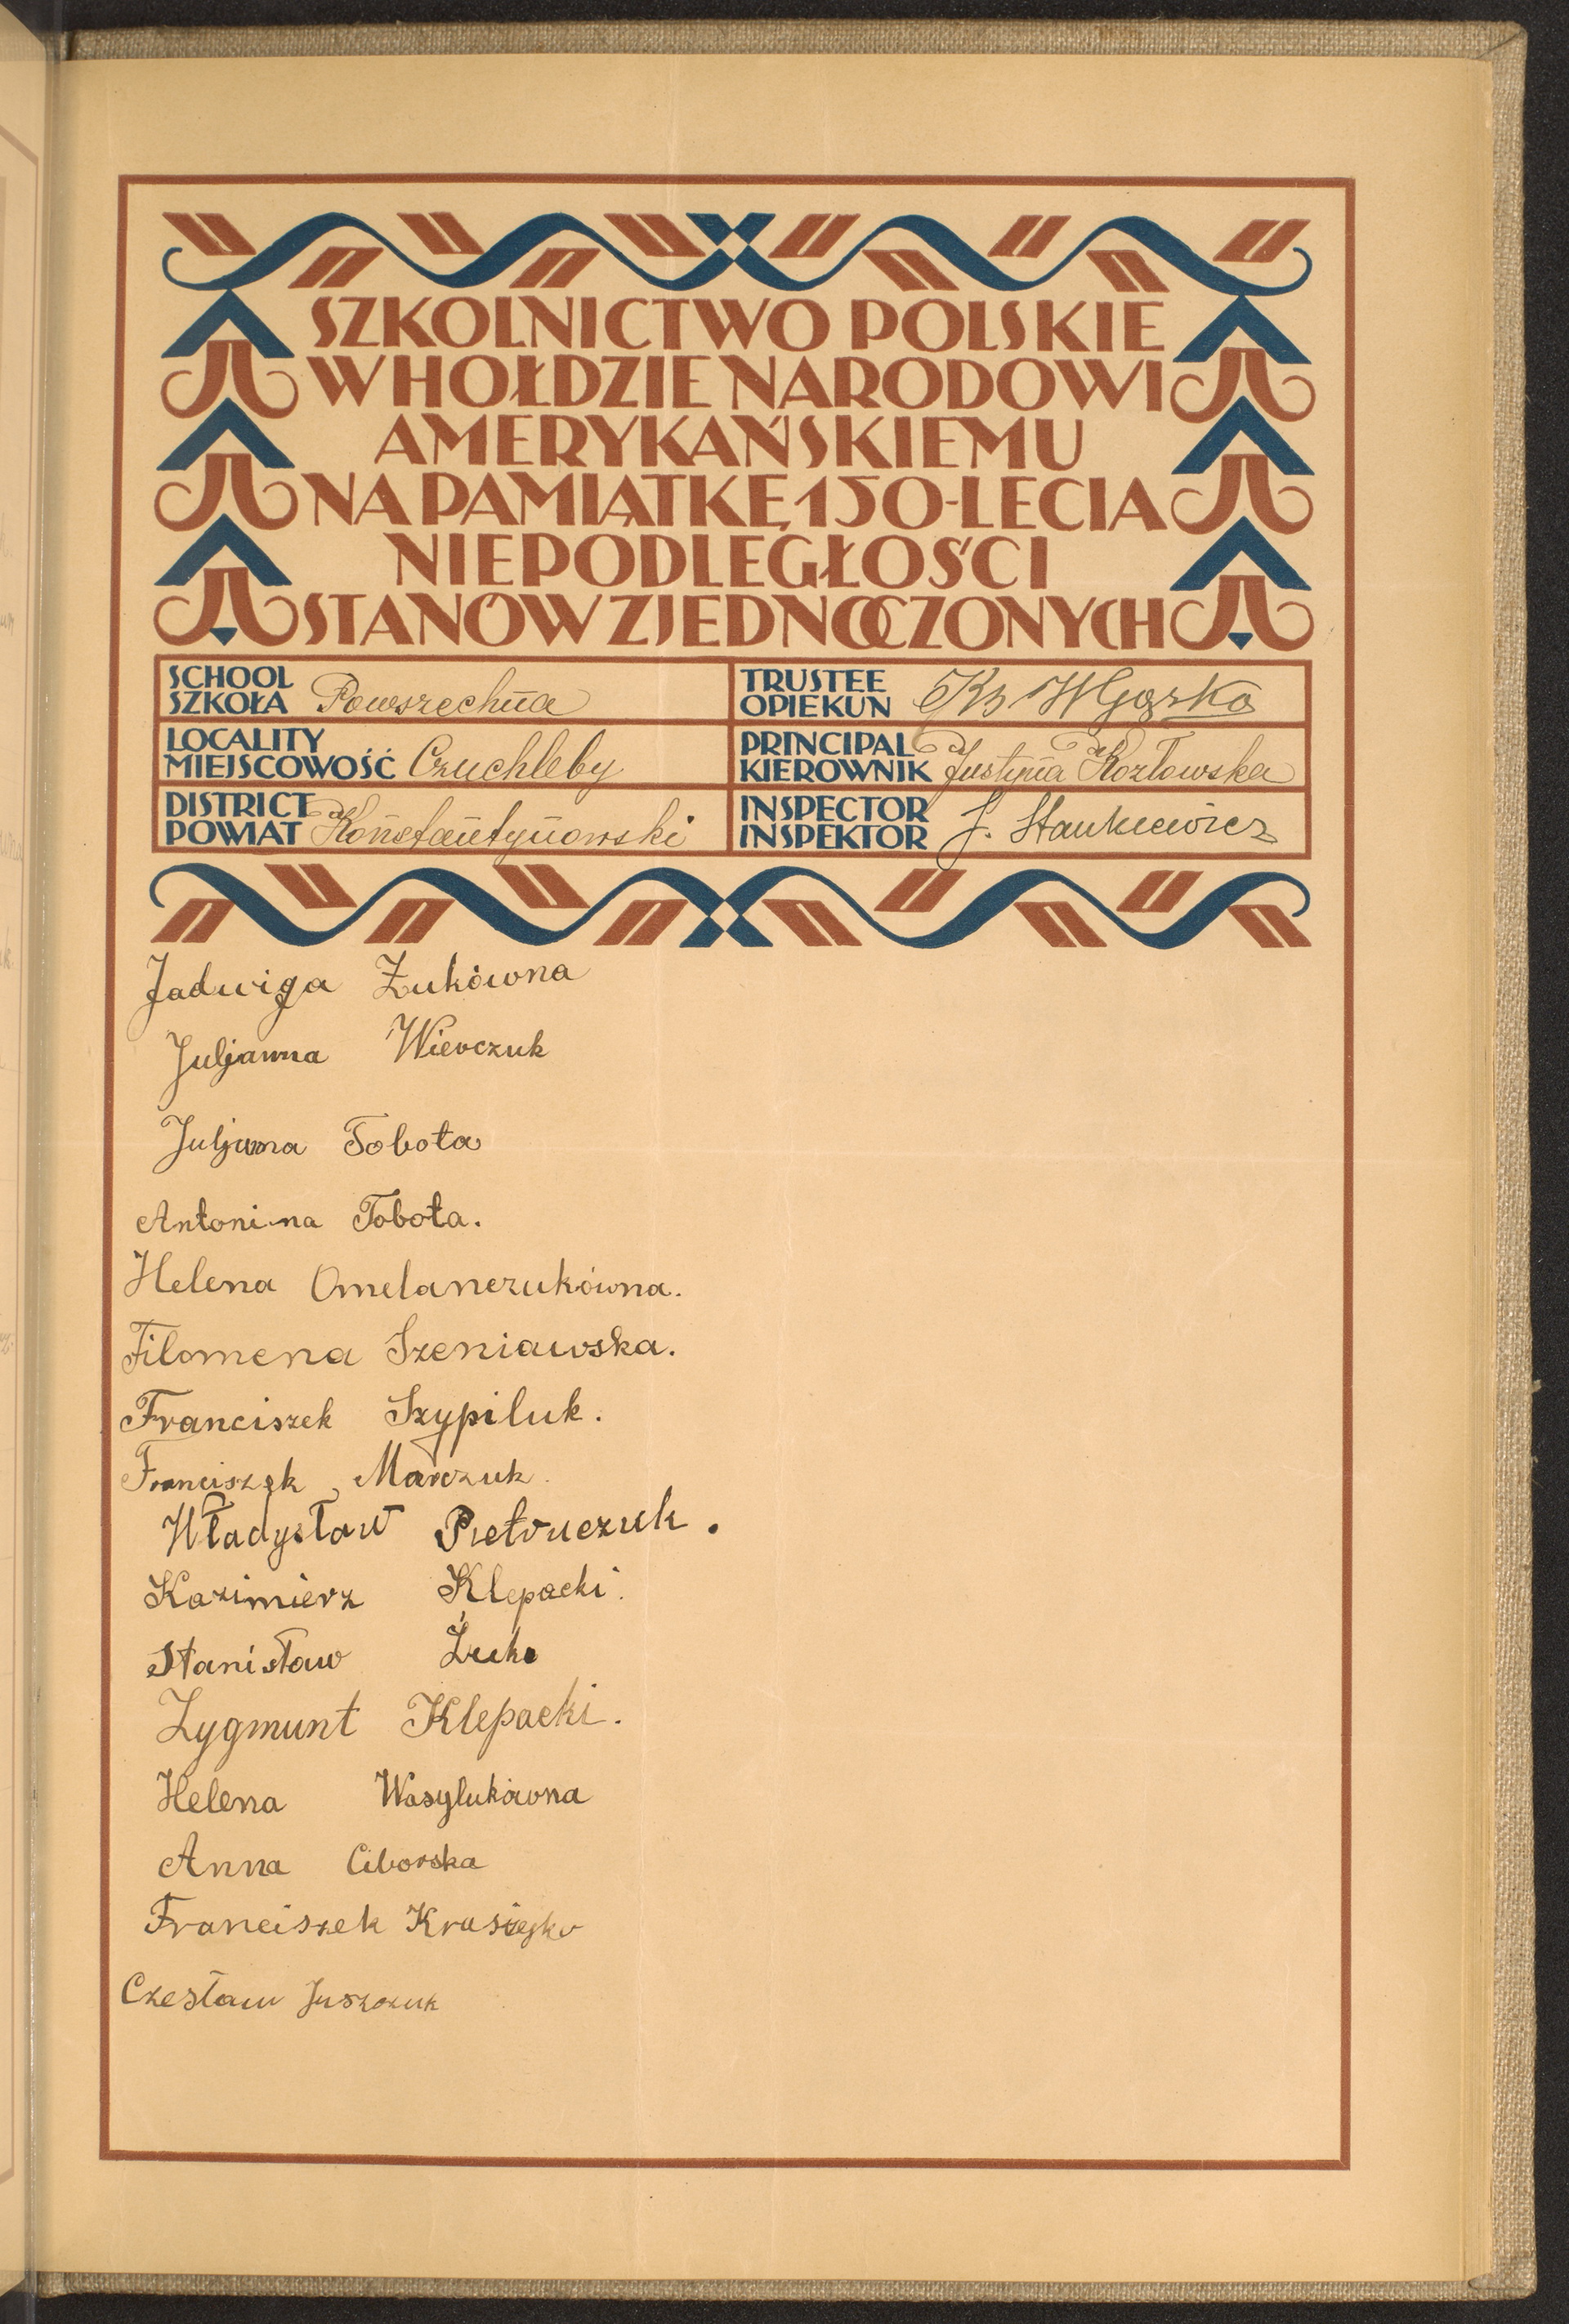 SZKOLNICTWO POLSKIE
W HOŁDZIE NARODOWI
AMERYKAŃSKIEMU
NA PAMIĄTKĘ 150-LECIA
NIEPODLEGŁOŚCI
STANÓW ZJEDNOCZONYCH
SCHOOL
SZKOŁA Powszechna
TRUSTEE
OPIEKUN Ks W Gąsko
LOCALITY
MIEJSCOWOŚĆ Czuchleby
PRINCIPAL
KIEROWNIK Justyna Kozłowska
DISTRICT
POWIAT Konstantynowski
INSPECTOR
INSPEKTOR J. Stankiewicz
Jadwiga Żukówna
Juljanna Wierczuk
Juljanna Tobota
Antonina Tobota.
Helena Omelanczukówna.
Filomena Szeniawska.
Franciszek Szypiluk.
Franciszek Marczuk.
Władysław Pietruczuk.
Kazimierz Klepacki.
Stanisław Żuk
Zygmunt Klepacki.
Helena Wasylukówna
Anna Ciborska
Franciszek
Czesław Juszczuk